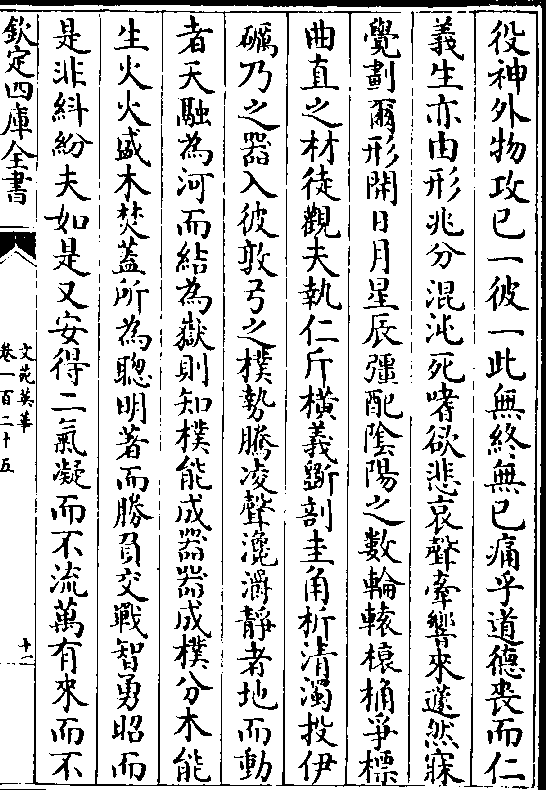 役神外物攻已一彼一此無終無已痛乎道德喪而仁
義生亦由形兆分混沌死嗜欲悲哀聲牽響來蘧然寐
覺劃爾形開日月星辰彊配陰陽之數輪轅榱桷爭標
曲直之材徒觀夫執仁斤橫義斵剖圭角析清濁投伊
礪乃之器入彼敦弓之樸勢騰凌聲瀺灂靜者地而動
者天融為河而結為嶽則知樸能成器器成樸分木能
生火火盛木焚蓋所為聰明著而勝負交戰智勇昭而
是非糾紛夫如是又安得二氣凝而不流萬有來而不
欽定四庫全書
文苑英華
卷一百二十五
十一